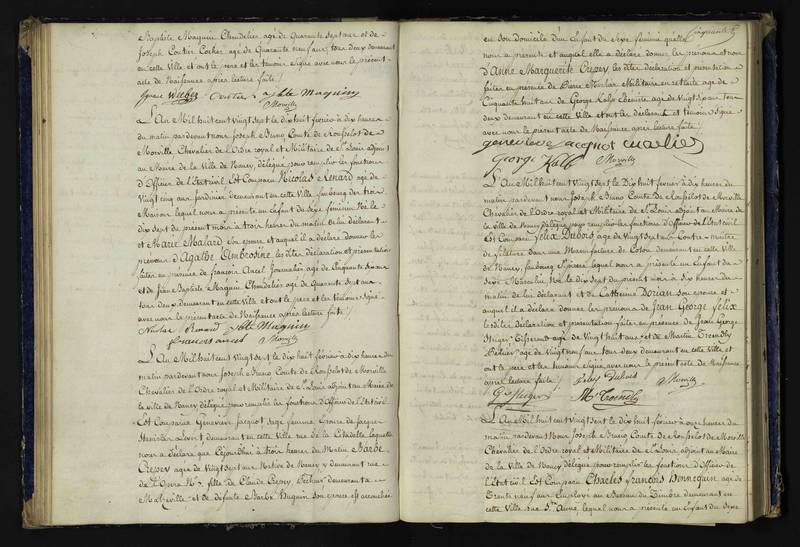 Baptiste Maguin Chandelier agé de Quarante Sept ans et de
Joseph Coutier Cocher agé de Quarante neuf ans, tous deux demeurant
en cette Ville et ont le pere et les temoins signé avec nous le présent
acte de Naissance après lecture faite
Maguin
Morville
L'An Mil huit cent Vingt sept le dix huit février à dix heures
du matin pardevant nous Joseph Bruno Comte de Rouselot de
Morville Chevalier de l'Ordre royal et Militaire de St Louis adjoint
au Maire de la Ville de Nancy, délégué pour remplir les fonctions
d'Officier de l'Etat civil Est Comparu Nicolas Renard agé de
Vingt cinq ans Jardinier demeurant en cette Ville faubourg des trois
Maisons lequel nous a présenté un Enfant du Sexe féminin Né le
dix sept du present mois à trois heures du matin de lui déclarant
et Marie Malard Son epouse et auquel il a déclaré donner les
prénoms d'Agathe Ambrosine, les dites déclaration et présentation
faites en présence de François Ancel Journalier agé de Cinquante
et de Jean Baptiste Maguin Chandelier agé de Quarante Sept ans
tous deux demeurant en cette Ville et ont le pere et les temoins signé
avec nous le présent acte de Naissance après lecture faite
Nicolas Renard Maguin
francois ancel Morville
L'An Mil huit cent Vingt sept le dix huit février à dix heures du
matin pardevant nous Joseph Bruno Comte de Rouselot de Morville
Chevalier de l'Ordre royal et Militaire de St Louis adjoint au Maire de
la ville de Nancy délégué pour remplir les fonctions d'Officier de l'Etat civil
Est Comparue Genevieve Jacquot Sage femme Epouse de Jacques
demeurant en cette Ville rue de la Citadelle, laquelle
nous a déclaré que Cejourdhui à trois heures du Matin Barbe
Crepey agée de Vingt sept ans Native de Nancy y demeurant rue
fille de Claude Crepey, Pecheur demeurant à
Malzeville et de defunte Barbe Huguin Son epouse est accouchée
Cinquante
en son domicile d'un Enfant du Sexe féminin quelle
nous a présenté et auquel elle a déclaré donner les prénoms et nom
d'Anne Marguerite Crepey, les dites déclaration et présentation
faites en présence de Pierre Militaire en retraite agé de
Cinquante huit ans de George Kalb Ebeniste agé de Vingt ans tous
deux demeurant en cette Ville et ont les déclarant et temoins signé
avec nous le présent acte de Naissance après lecture faite
genevieve jacquot
George Kalb Morville
L'An Mil huit cent Vingt sept le Dix huit février à dix heures du
matin pardevant nous Joseph Bruno Comte De Rouselot de Morville
Chevalier de l'Ordre royal et Militaire de St Louis adjoint au Maire de
la Ville de Nancy délégué pour remplir les fonctions d'Officier de l'Etat civil
Est Comparu Felix Dubois agé de Vingt sept ans Contre-maitre
de filature dans une Manufacture de Coton demeurant en cette Ville
de Nancy, faubourg St Pierre lequel nous a présenté un Enfant du
Sexe Masculin Né le dix sept du présent mois à dix heures du
matin de lui déclarant et de Catherine Dorian son epouse et
auquel il a déclaré donner les prénoms de Jean George Felix
les dites déclaration et présentation faites en présence de Jean George
Steiger Tisserand agé de Vingt huit ans et de Martin
agé de Vingt neuf ans tous deux demeurant en cette Ville et
ont le pere et les temoins signé avec nous le présent acte de Naissance
après lecture faite Felix Dubois Morville
G Steiger
L'An Mil huit cent Vingt sept le Dix huit février à onze heures du
matin pardevant Nous Joseph Bruno Comte de Rouselot de Morville
Chevalier de l'Ordre royal et Militaire de St Louis, adjoint au Maire
de la Ville de Nancy délégué pour remplir les fonctions d'Officier de
l'Etat civil Est Comparu Charles François Hennequin agé de
Trente neuf ans Employé au Bureau du Timbre demeurant en
cette Ville rue Ste Anne, lequel nous a présenté un Enfant du Sexe